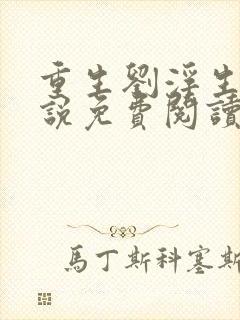 重生劉淫生
説免費閱讀
馬丁斯科塞斯